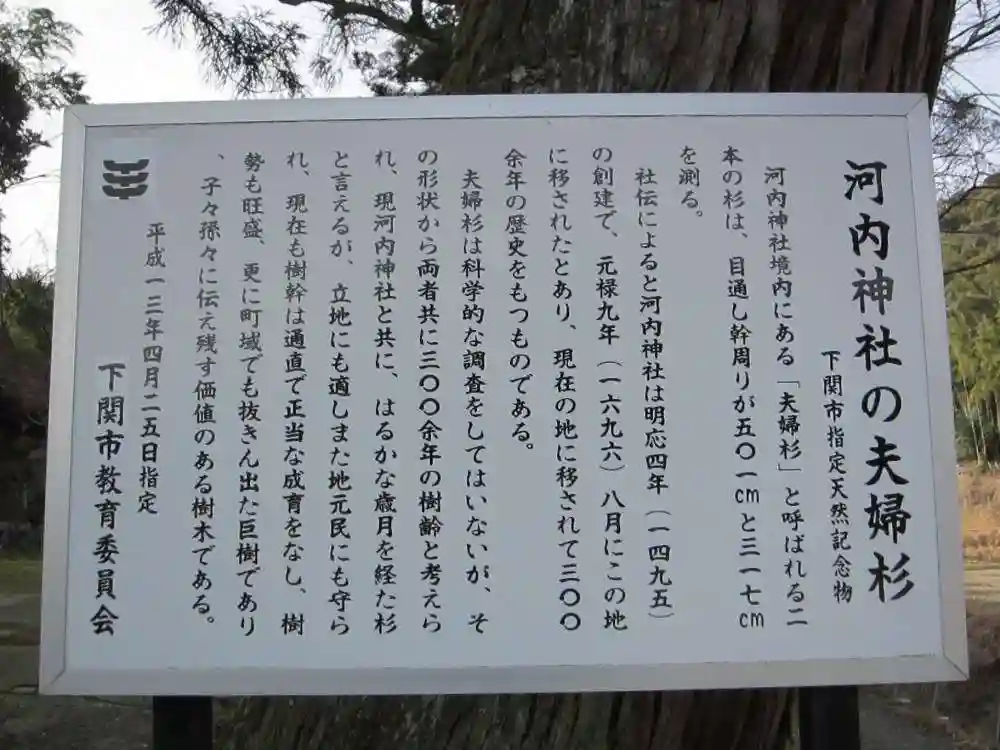 河内神社の夫婦杉
下関市指定天然記念物
河内神社境内にある「夫婦杉」と呼ばれる二
本の杉は、目通し幹周りが五〇一cmと三一七cm
を測る。
社伝によると河内神社は明応四年（一四九五）
の創建で、元禄九年（一六九六）八月にこの地
に移されたとあり、現在の地に移されて三〇〇
余年の歴史をもつものである。
夫婦杉は科学的な調査をしてはいないが、そ
の形状から両者共に三〇〇余年の樹齢と考えら
れ、現河内神社と共に、はるかな歳月を経た杉
と言えるが、立地にも適しまた地元民にも守ら
れ、現在も樹幹は通直で正当な成育をなし、樹
勢も旺盛、更に町域でも抜きん出た巨樹であり
、子々孫々に伝え残す価値のある樹木である。
平成一三年四月二五日指定
下関市教育委員会